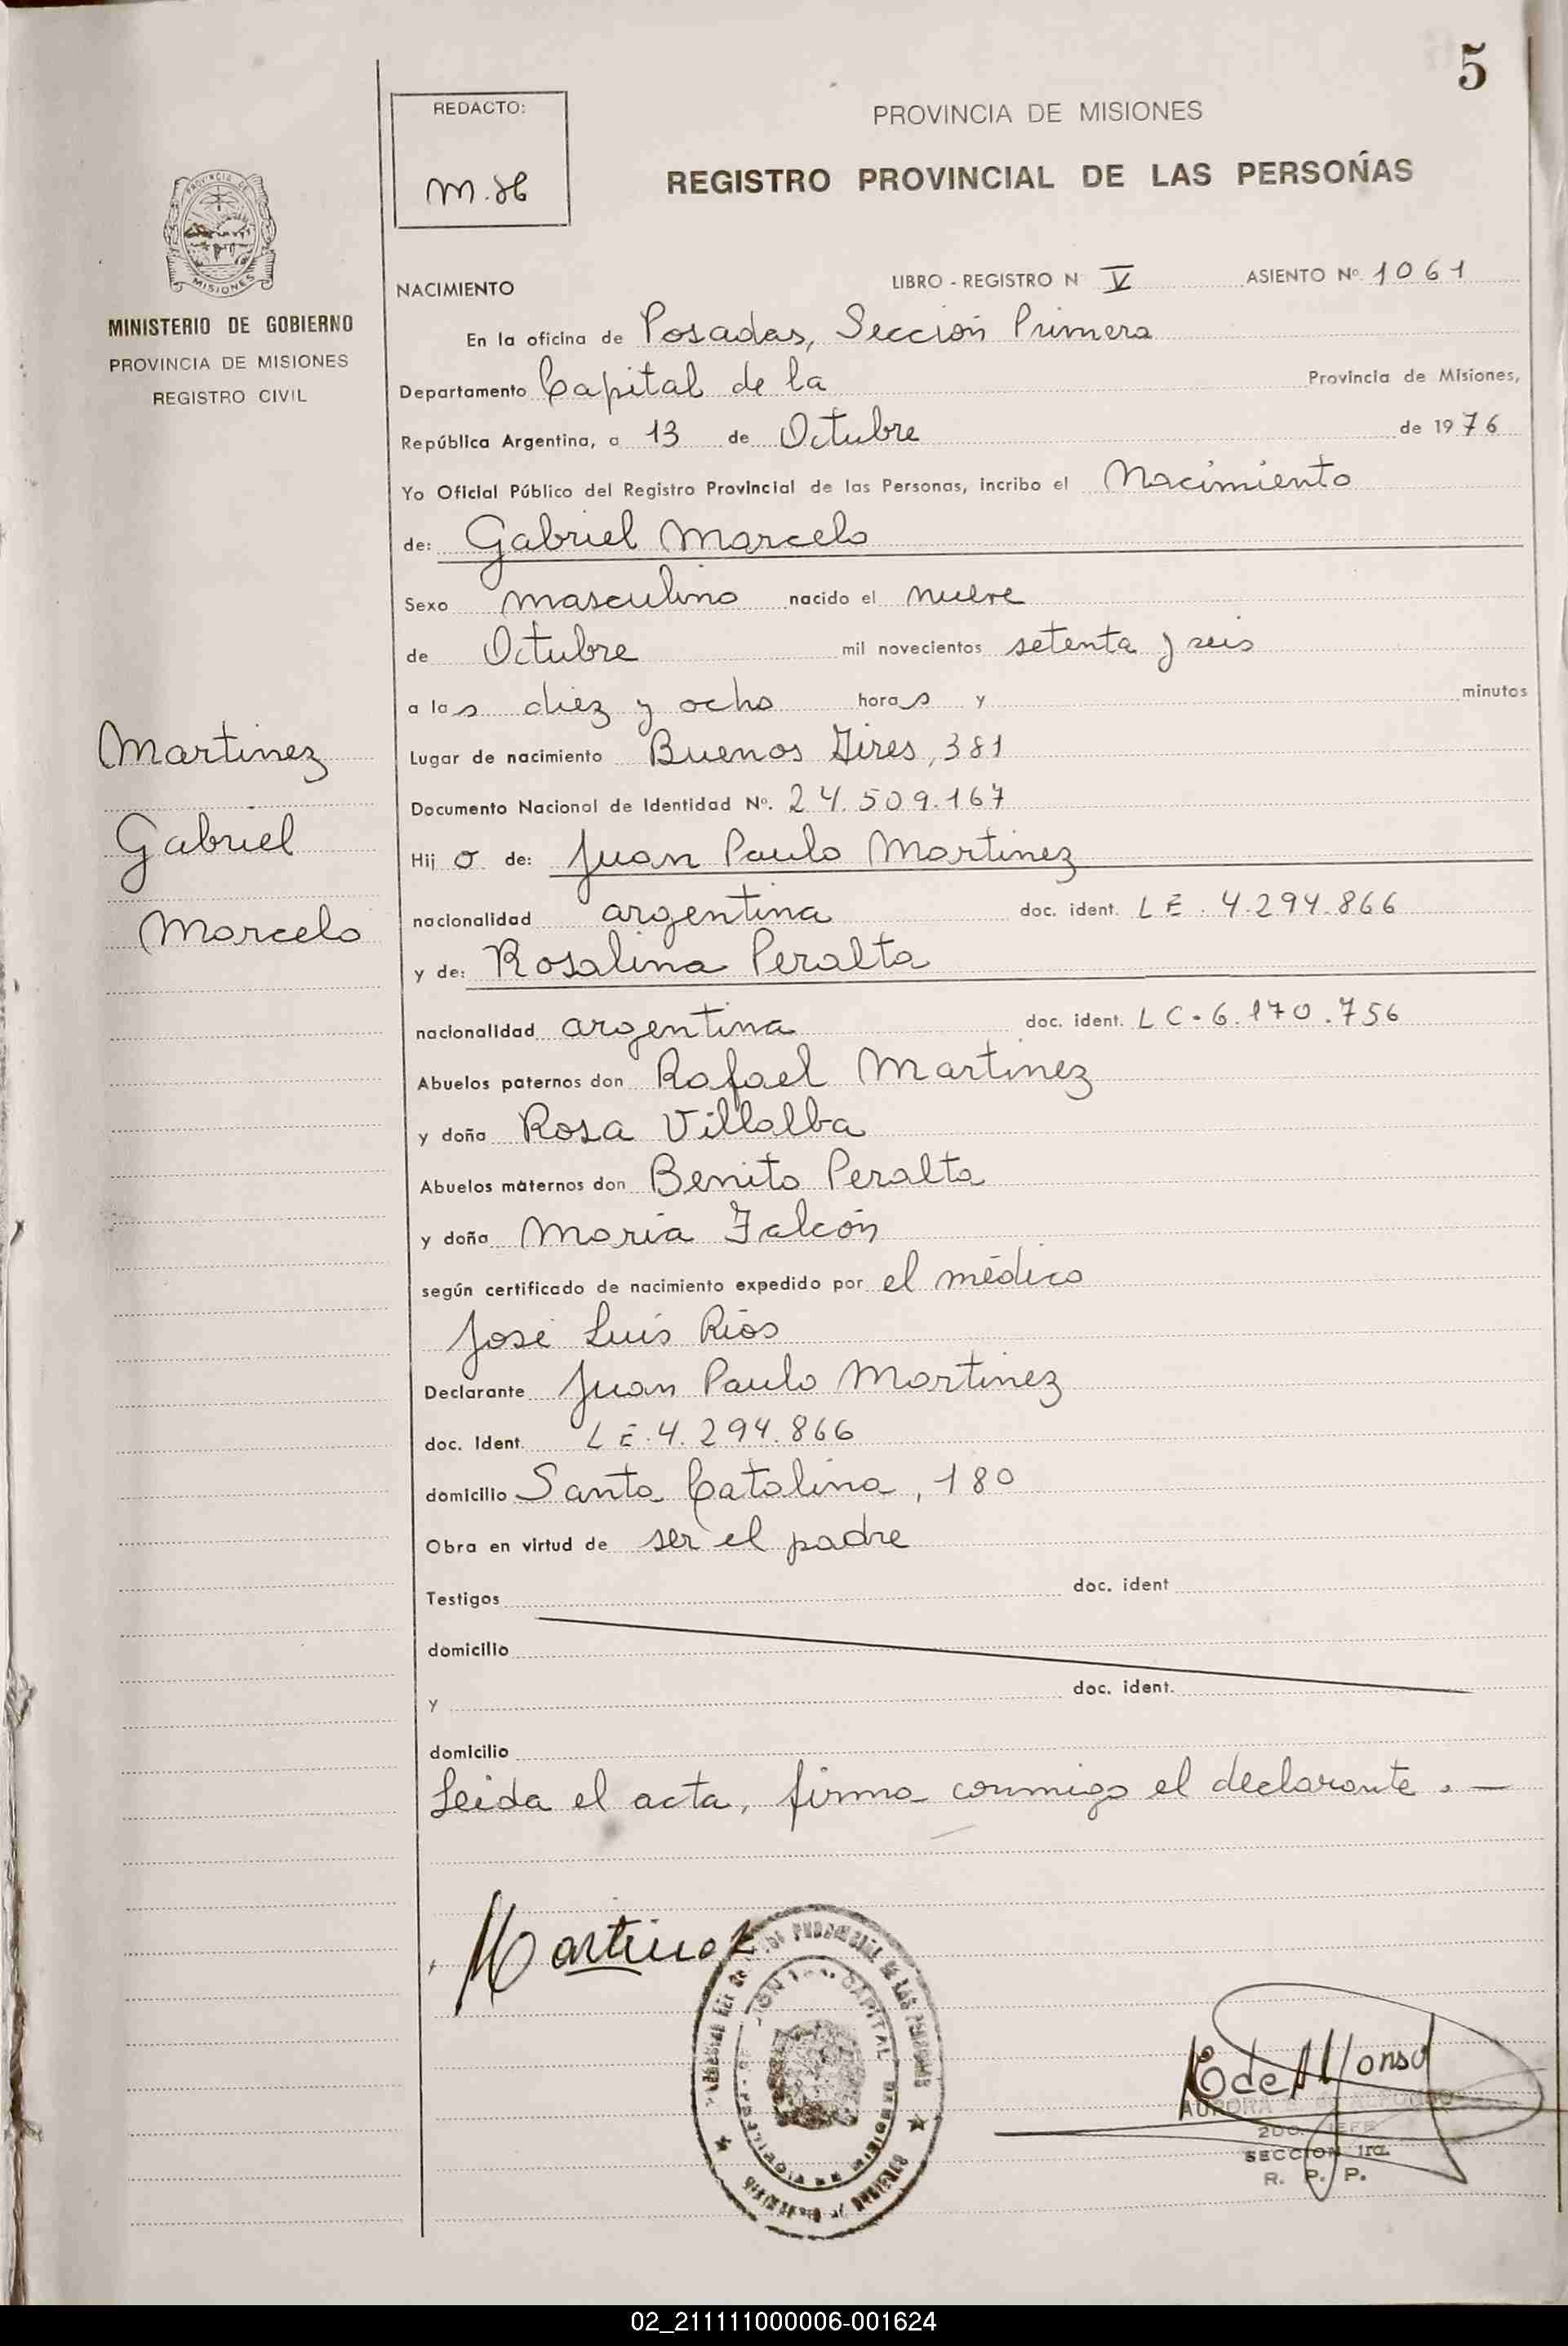 5
REDACTO:
M.H
PROVINCIA DE MISIONES
REGISTRO PROVINCIAL DE LAS PERSOÑAS
PROVINCIA DE
MISIONES
MINISTERIO DE GOBIERNO
PROVINCIA DE MISIONES
REGISTRO CIVIL
NACIMIENTO LIBRO - REGISTRO N V ASIENTO Nº. 1061
En la oficina de Posadas, Sección Primera
Departamento Capital de la Provincia de Misiones,
República Argentina, a 13 de Octubre de 1976
Yo Oficial Público del Registro Provincial de las Personas, incribo el Nacimiento
de: Gabriel Marcelo
Sexo masculino nacido el nueve
de Octubre mil novecientos setenta y seis
a las diez y ocho horas y minutos
Martinez
Lugar de nacimiento Buenos Aires, 381
Documento Nacional de Identidad Nº. 24.509.167
Gabriel
Hijo de: Juan Paulo Martinez
nacionalidad argentina doc. ident. LE. 4.294.866
Marcelo
y de: Rosalina Peralta
nacionalidad argentina doc. ident. LC. 6.170.756
Abuelos paternos don Rafael Martinez
y doña Rosa Villalba
Abuelos maternos don Benito Peralta
y doña Maria Falcón
según certificado de nacimiento expedido por el médico
José Luis Rios
Declarante Juan Paulo Martinez
doc. Ident. LE. 4.294.866
domicilio Santa Catalina, 180
Obra en virtud de ser el padre
Testigos doc. ident
domicilio
y doc. ident.
domicilio
Leida el acta, firma conmigo el declarante. —
Martinez
CAPITAL
E de Alfonso
AURORA E. DE ALFONSO
2DO. JEFE
SECCION 1ra.
R. P. P.
02_211111000006-001624